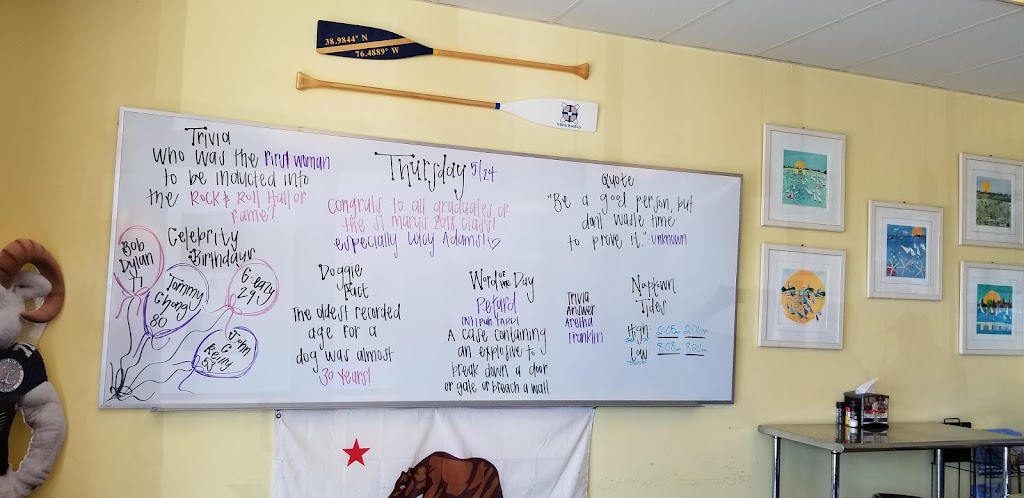 38.9844° N
76.4889° W
Trivia
Who was the First woman
to be inducted into
the Rock & Roll Hall of
Fame?
Thursday 5/24
congrats to all graduates of
the St Mary's 2018 class!
especially Lucy Adams!!
Quote
"Be a good person, but
don't waste time
to prove it." -unknown
Celebrity
Birthdays
Bob
Dylan
77
Tommy
Chong
80
G-eazy
29
John
C
Reilly
53
Doggie
Fact
The oldest recorded
age for a
dog was almost
30 years!
Word of the Day
Petard
A case containing
an explosive to
break down a door
or gate or breach a wall
Trivia
Answer
Aretha
Franklin
Naptown
Tides
High 2:05am 2:06pm
Low 8:08am 8:02pm